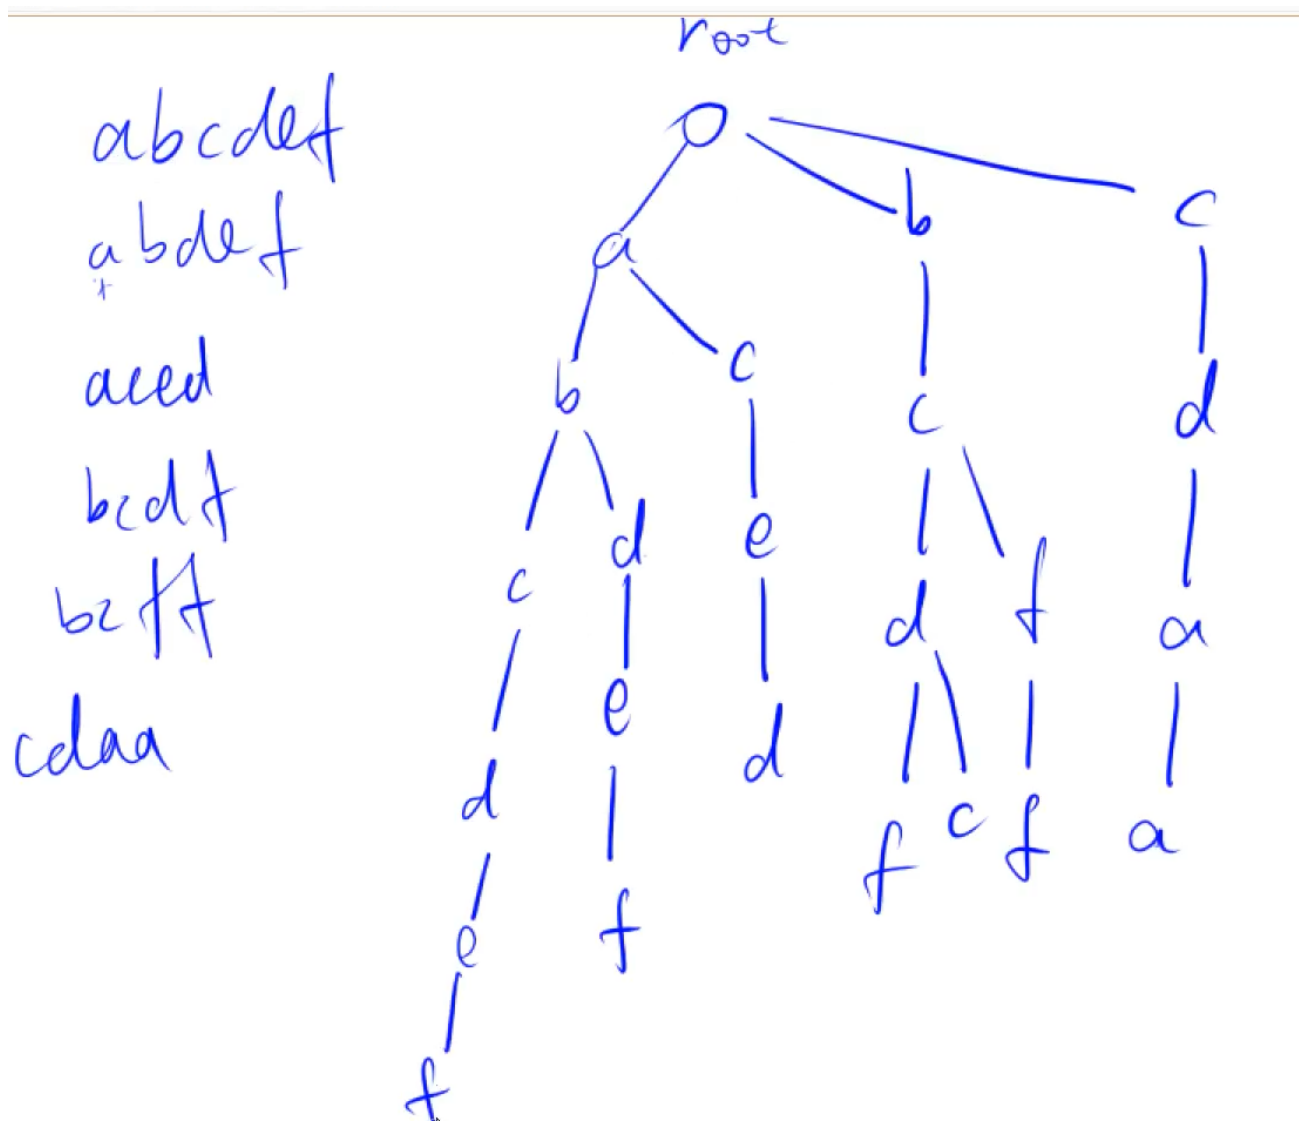 root
abcdef
abdef
aced
bcdf
bcff
cdaa
a
b
c
b
c
c
d
c
d
e
d
f
a
d
e
d
f
c
f
a
e
f
f